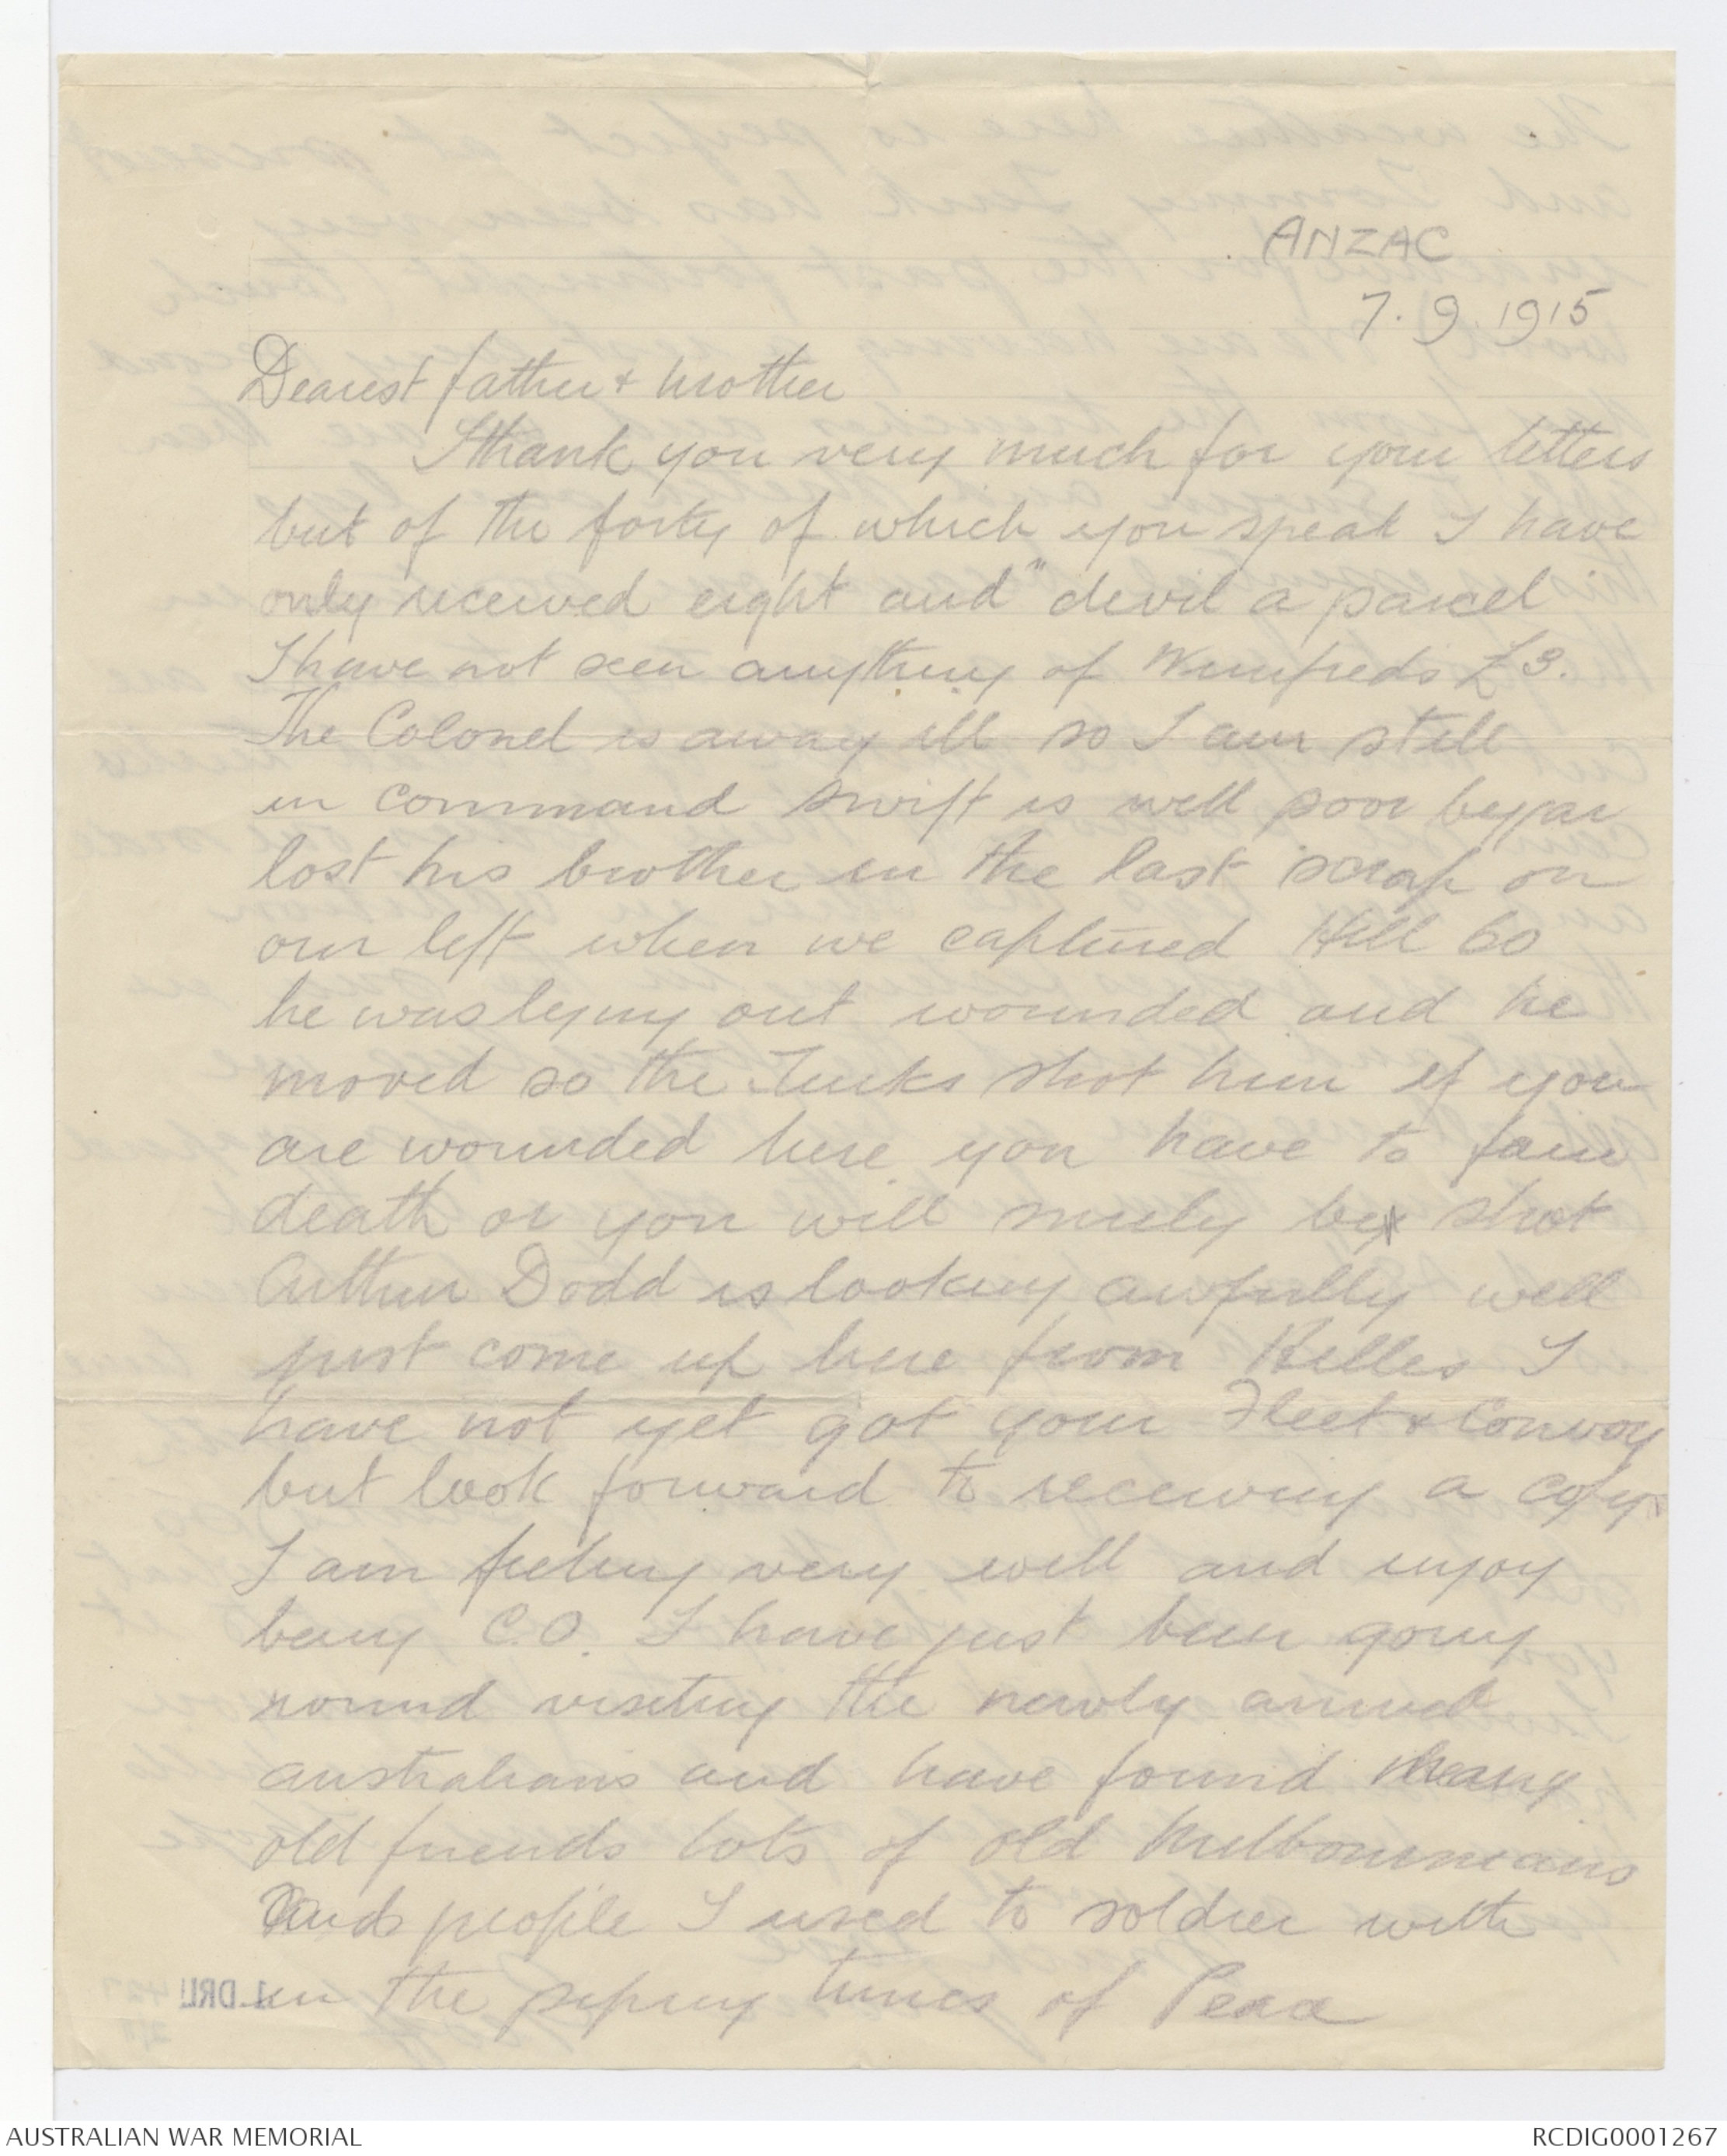 ANZAC
7. 9. 1915
Dearest father & Mother
I thank you very much for your letters
but of the forty of which you speak I have
only received eight and "devil a parcel"
I have not seen anything of Winifreds £3.
The Colonel is away ill so I am still
in command Swift is well poor beggar
lost his brother in the last scrap on
our left when we captured Hill 60
he was lying out wounded and he
moved so the Turks shot him if you
are wounded here you have to
death or you will surely be shot
Arthur Dodd is looking awfully well
just come up here from Helles I
have not yet got your Fleet & Convoy
but look forward to receiving a copy.
I am feeling very well and enjoy
being C.O. I have just been going
round visiting the newly arrived
australians and have found many
old friends lots of old Melburnians
and people I used to soldier with
in the piping times of Peace
1 DRL
AUSTRALIAN WAR MEMORIAL
RCDIG0001267